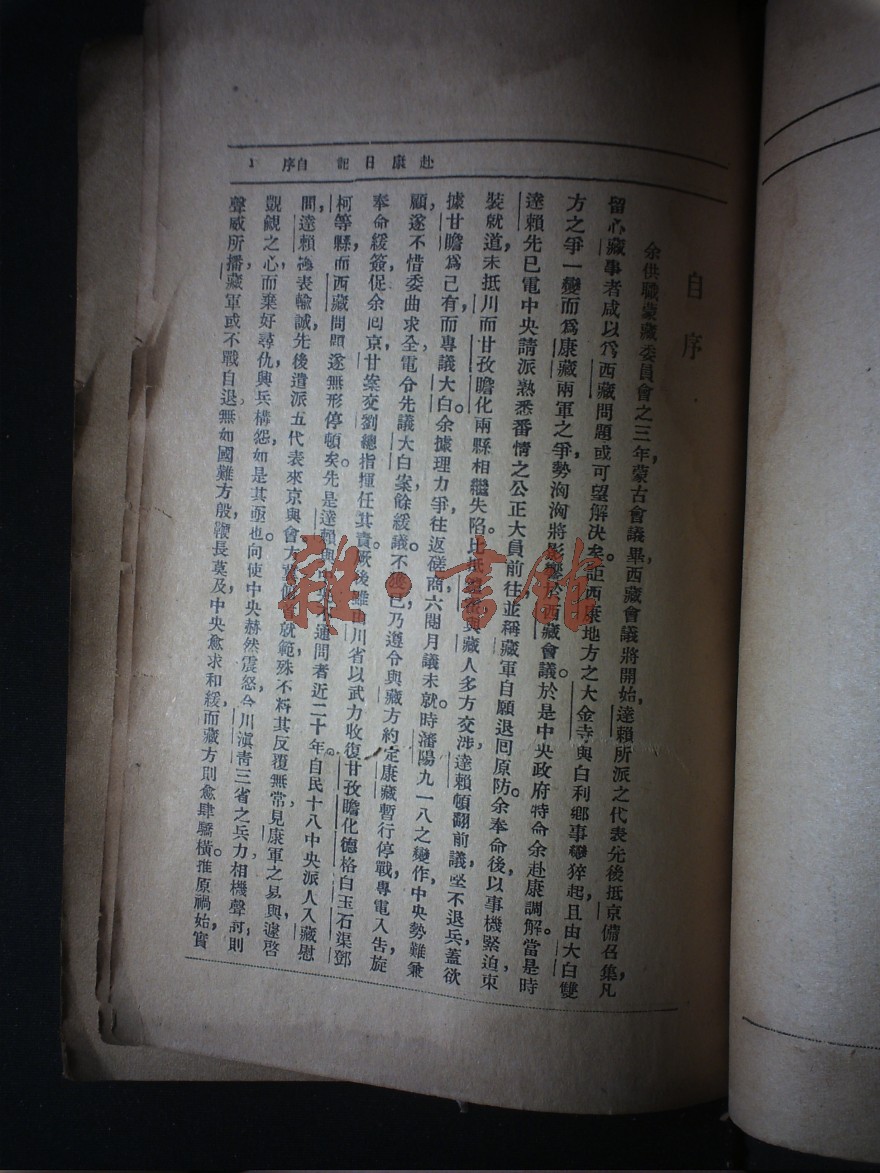 赴康日記 自序 1
自序
余供職蒙藏委員會之三年，蒙古會議畢，西藏會議將開始，達賴所派之代表先後抵京備召集，凡
留心藏事者咸以爲西藏問題或可望解決矣。詎西康地方之大金寺與白利鄉事變猝起，且由大白雙
方之爭一變而爲康藏兩軍之爭，勢洶洶將影響於西藏會議。於是中央政府特命余赴康調解，當是時
達賴先已電中央請派熟悉番情之公正大員前往，並稱藏軍自願退囘原防。余奉命後以事機緊迫，束
裝就道，未抵川而甘孜瞻化兩縣相繼失陷。比抵 與藏人多方交涉，達賴頓翻前議，堅不退兵，蓋欲
據甘瞻爲己有而專議大白。余據理力爭，往返磋商六閱月議未就，時瀋陽九一八之變作，中央勢難兼
顧，遂不惜委曲求全，電令先議大白案，餘緩議。不獲已乃遵令與藏方約定康藏暫行停戰，專電入告，旋
奉命緩簽，促余囘京，甘案交劉總指揮任其責。厥後雖由川省以武力收復甘孜瞻化德格白玉石渠鄧
柯等縣，而西藏問題遂無形停頓矣。先是達賴與 通問者近二十年，自民十八中央派人入藏慰
問，達賴亟表輸誠，先後遣派五代表來京與會， 就範，殊不料其反覆無常，見康軍之易與，遽啓
覬覦之心，而棄好尋仇，興兵構怨，如是其亟也。向使中央赫然震怒，令川滇青三省之兵力相機聲討，則
聲威所播，藏軍或不戰自退，無如國難方殷，鞭長莫及，中央愈求和緩，而藏方則愈肆驕橫。推原禍始，實
雜·書館